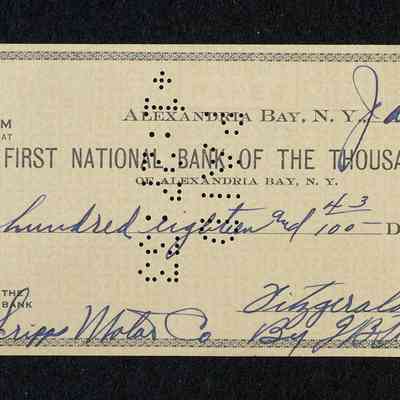 ALEXANDRIA BAY, N. Y.,
M
AT
FIRST NATIONAL BANK OF THE THOUSA
OF ALEXANDRIA BAY, N. Y.
hundred eighteen and 43/100 D
THE
BANK
Scripps Motor Co
Fitzgerald
By